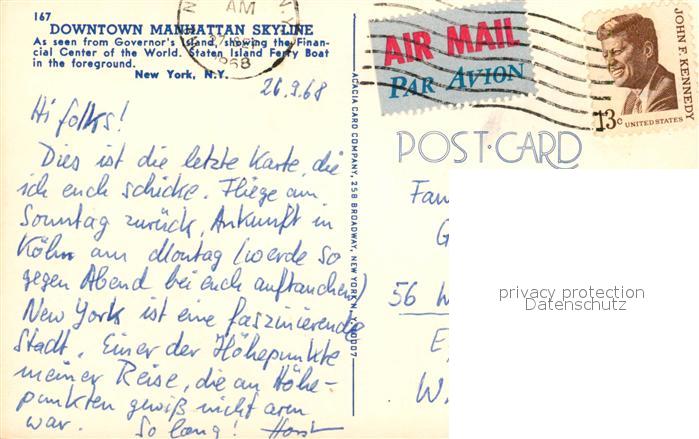 167
DOWNTOWN MANHATTAN SKYLINE
As seen from Governor's Island, showing the Finan-
cial Center of the World. Staten Island Ferry Boat
in the foreground.
New York, N.Y.
26.9.68
Hi folks!
Dies ist die letzte Karte, die
ich euch schicke. Fliege am
Sonntag zurück, Ankunft in
Köln am Montag (werde so
gegen Abend bei euch auftauchen)
New York ist eine faszinierende
Stadt. Einer der Höhepunkte
meiner Reise, die an Höhe-
punkten gewiß nicht arm
war. So long! Horst
ACACIA CARD COMPANY, 258 BROADWAY, NEW YORK N. Y. 10007
AM
1968
AIR MAIL
PAR AVION
JOHN F. KENNEDY
13c UNITED STATES
POST·CARD
Fam
G
56 W
E
W.
privacy protection
Datenschutz